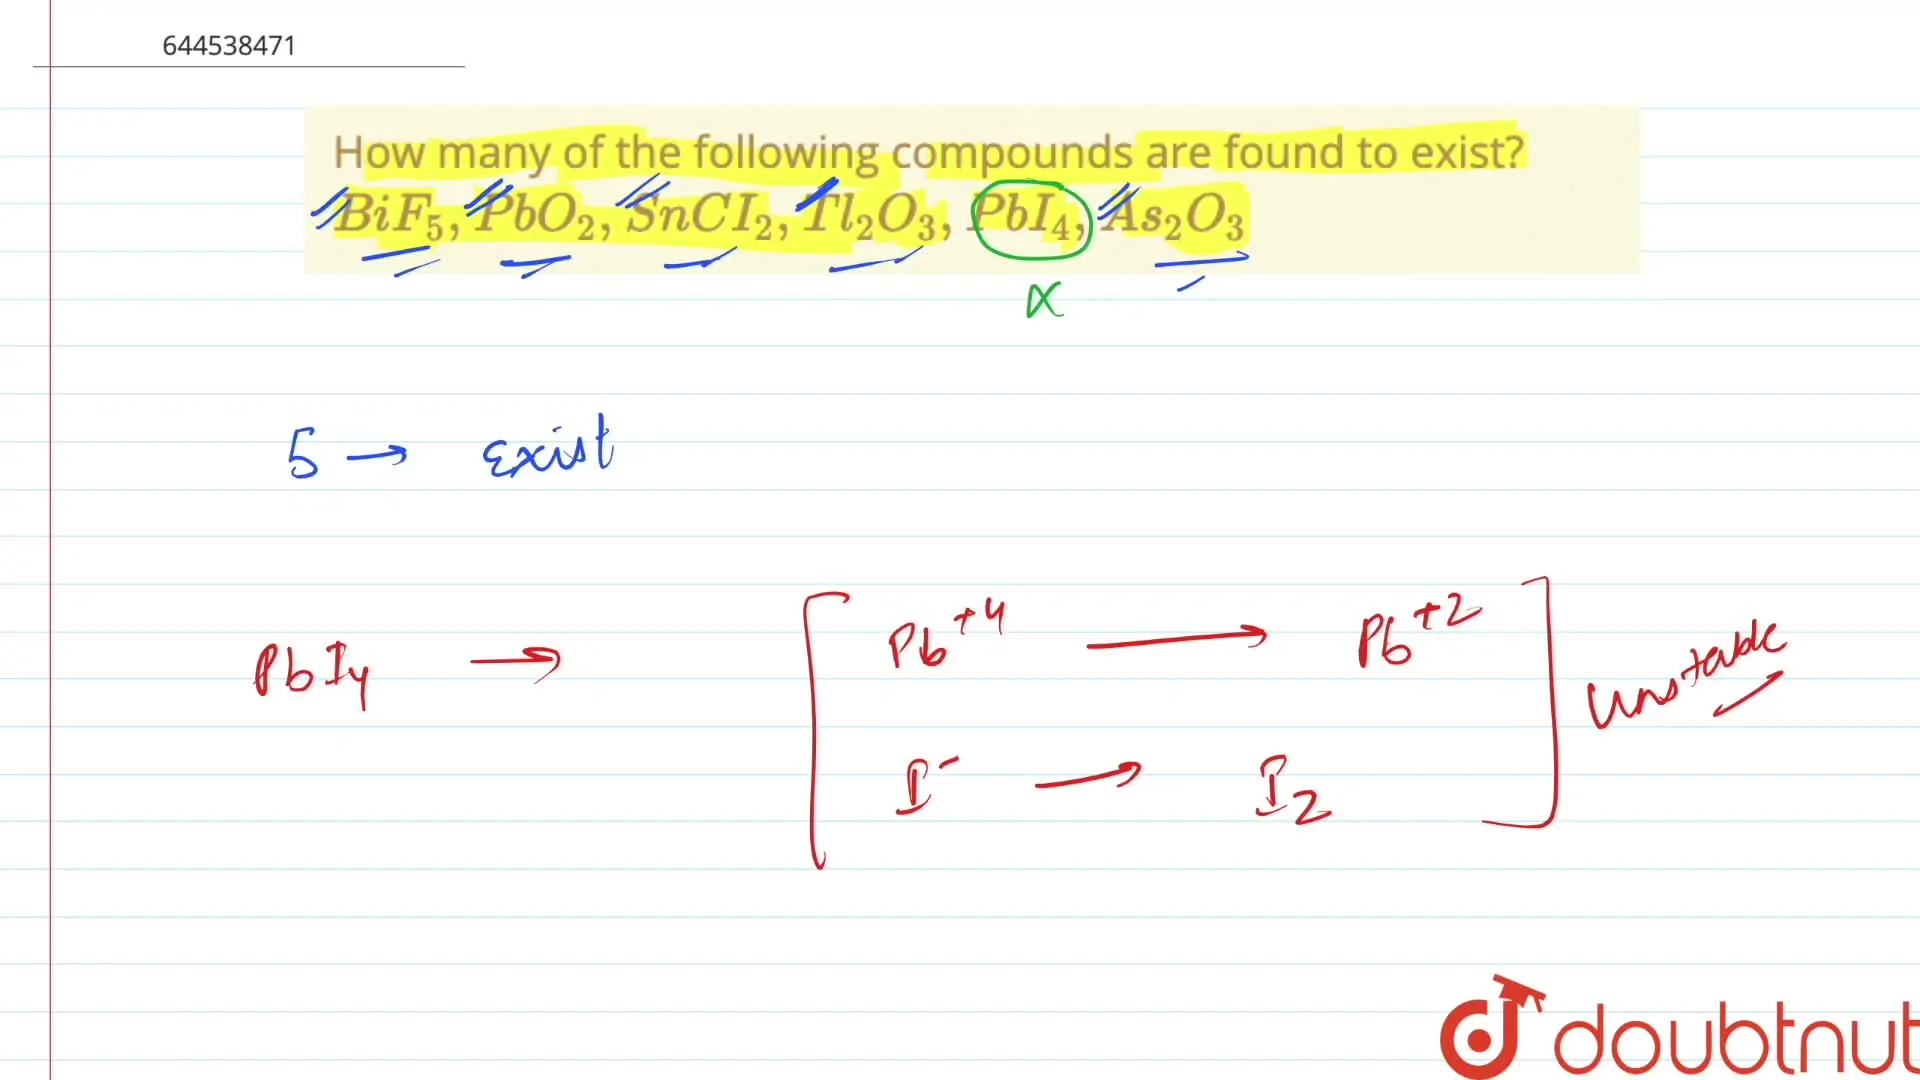 644538471
How many of the following compounds are found to exist?
BiF₅, PbO₂, SnCI₂, Tl₂O₃, PbI₄, As₂O₃
x
5 → exist
PbI₄ → [ Pb⁺⁴ → Pb⁺² ] unstable
I⁻ → I₂
doubtnut